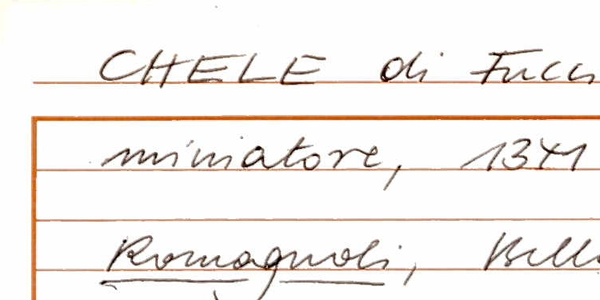 CHELE di Fucci
miniatore, 1341
Romagnoli, Bell